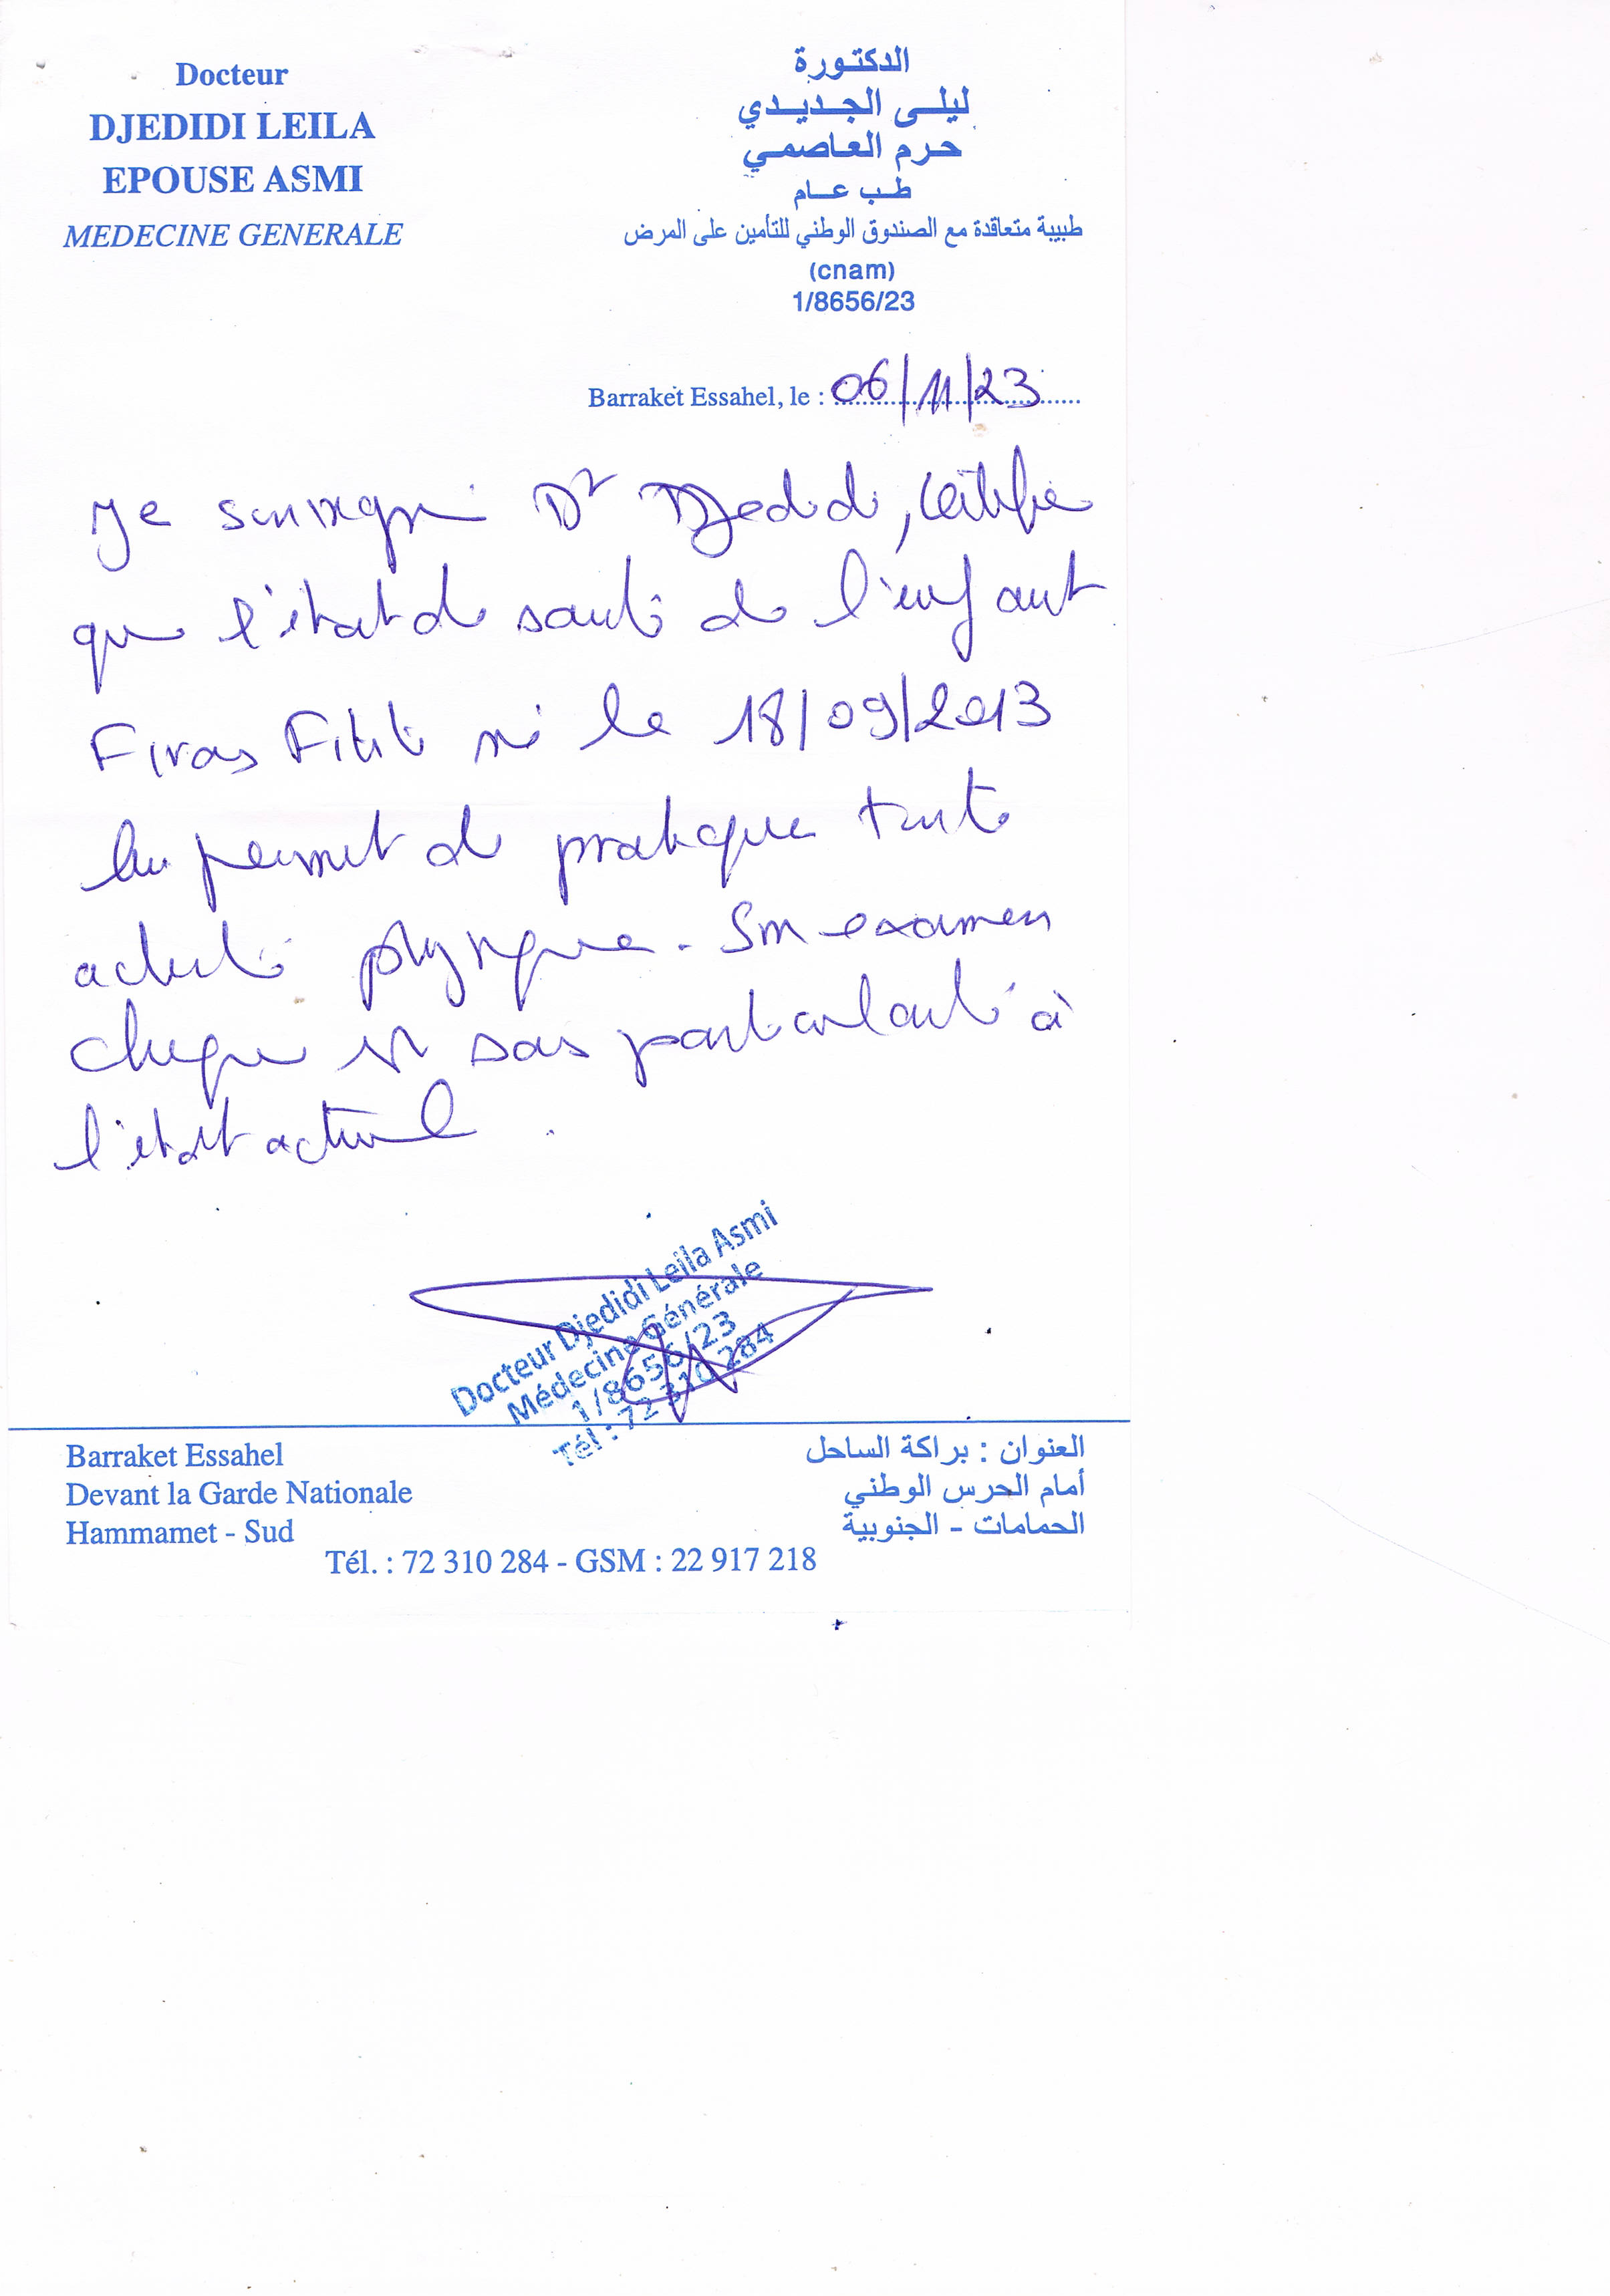 Docteur
DJEDIDI LEILA
EPOUSE ASMI
MEDECINE GENERALE
الدكتورة
ليلى الجديدي
حرم العاصمي
طب عام
طبيبة متعاقدة مع الصندوق الوطني للتأمين على المرض
(cnam)
1/8656/23
Barraket Essahel, le : 06/11/23
Je soussigné Dr Djedidi, certifie
que l'état de santé de l'enfant
Firas Fititi né le 18/09/2013
lui permet de pratiquer toute
activité physique. Son examen
clinique est sans particularité à
l'état actuel.
Docteur Djedidi Leila Asmi
Médecine Générale
1/8656/23
Tél : 72 310 284
Barraket Essahel
Devant la Garde Nationale
Hammamet - Sud
العنوان : براكة الساحل
أمام الحرس الوطني
الحمامات - الجنوبية
Tél. : 72 310 284 - GSM : 22 917 218